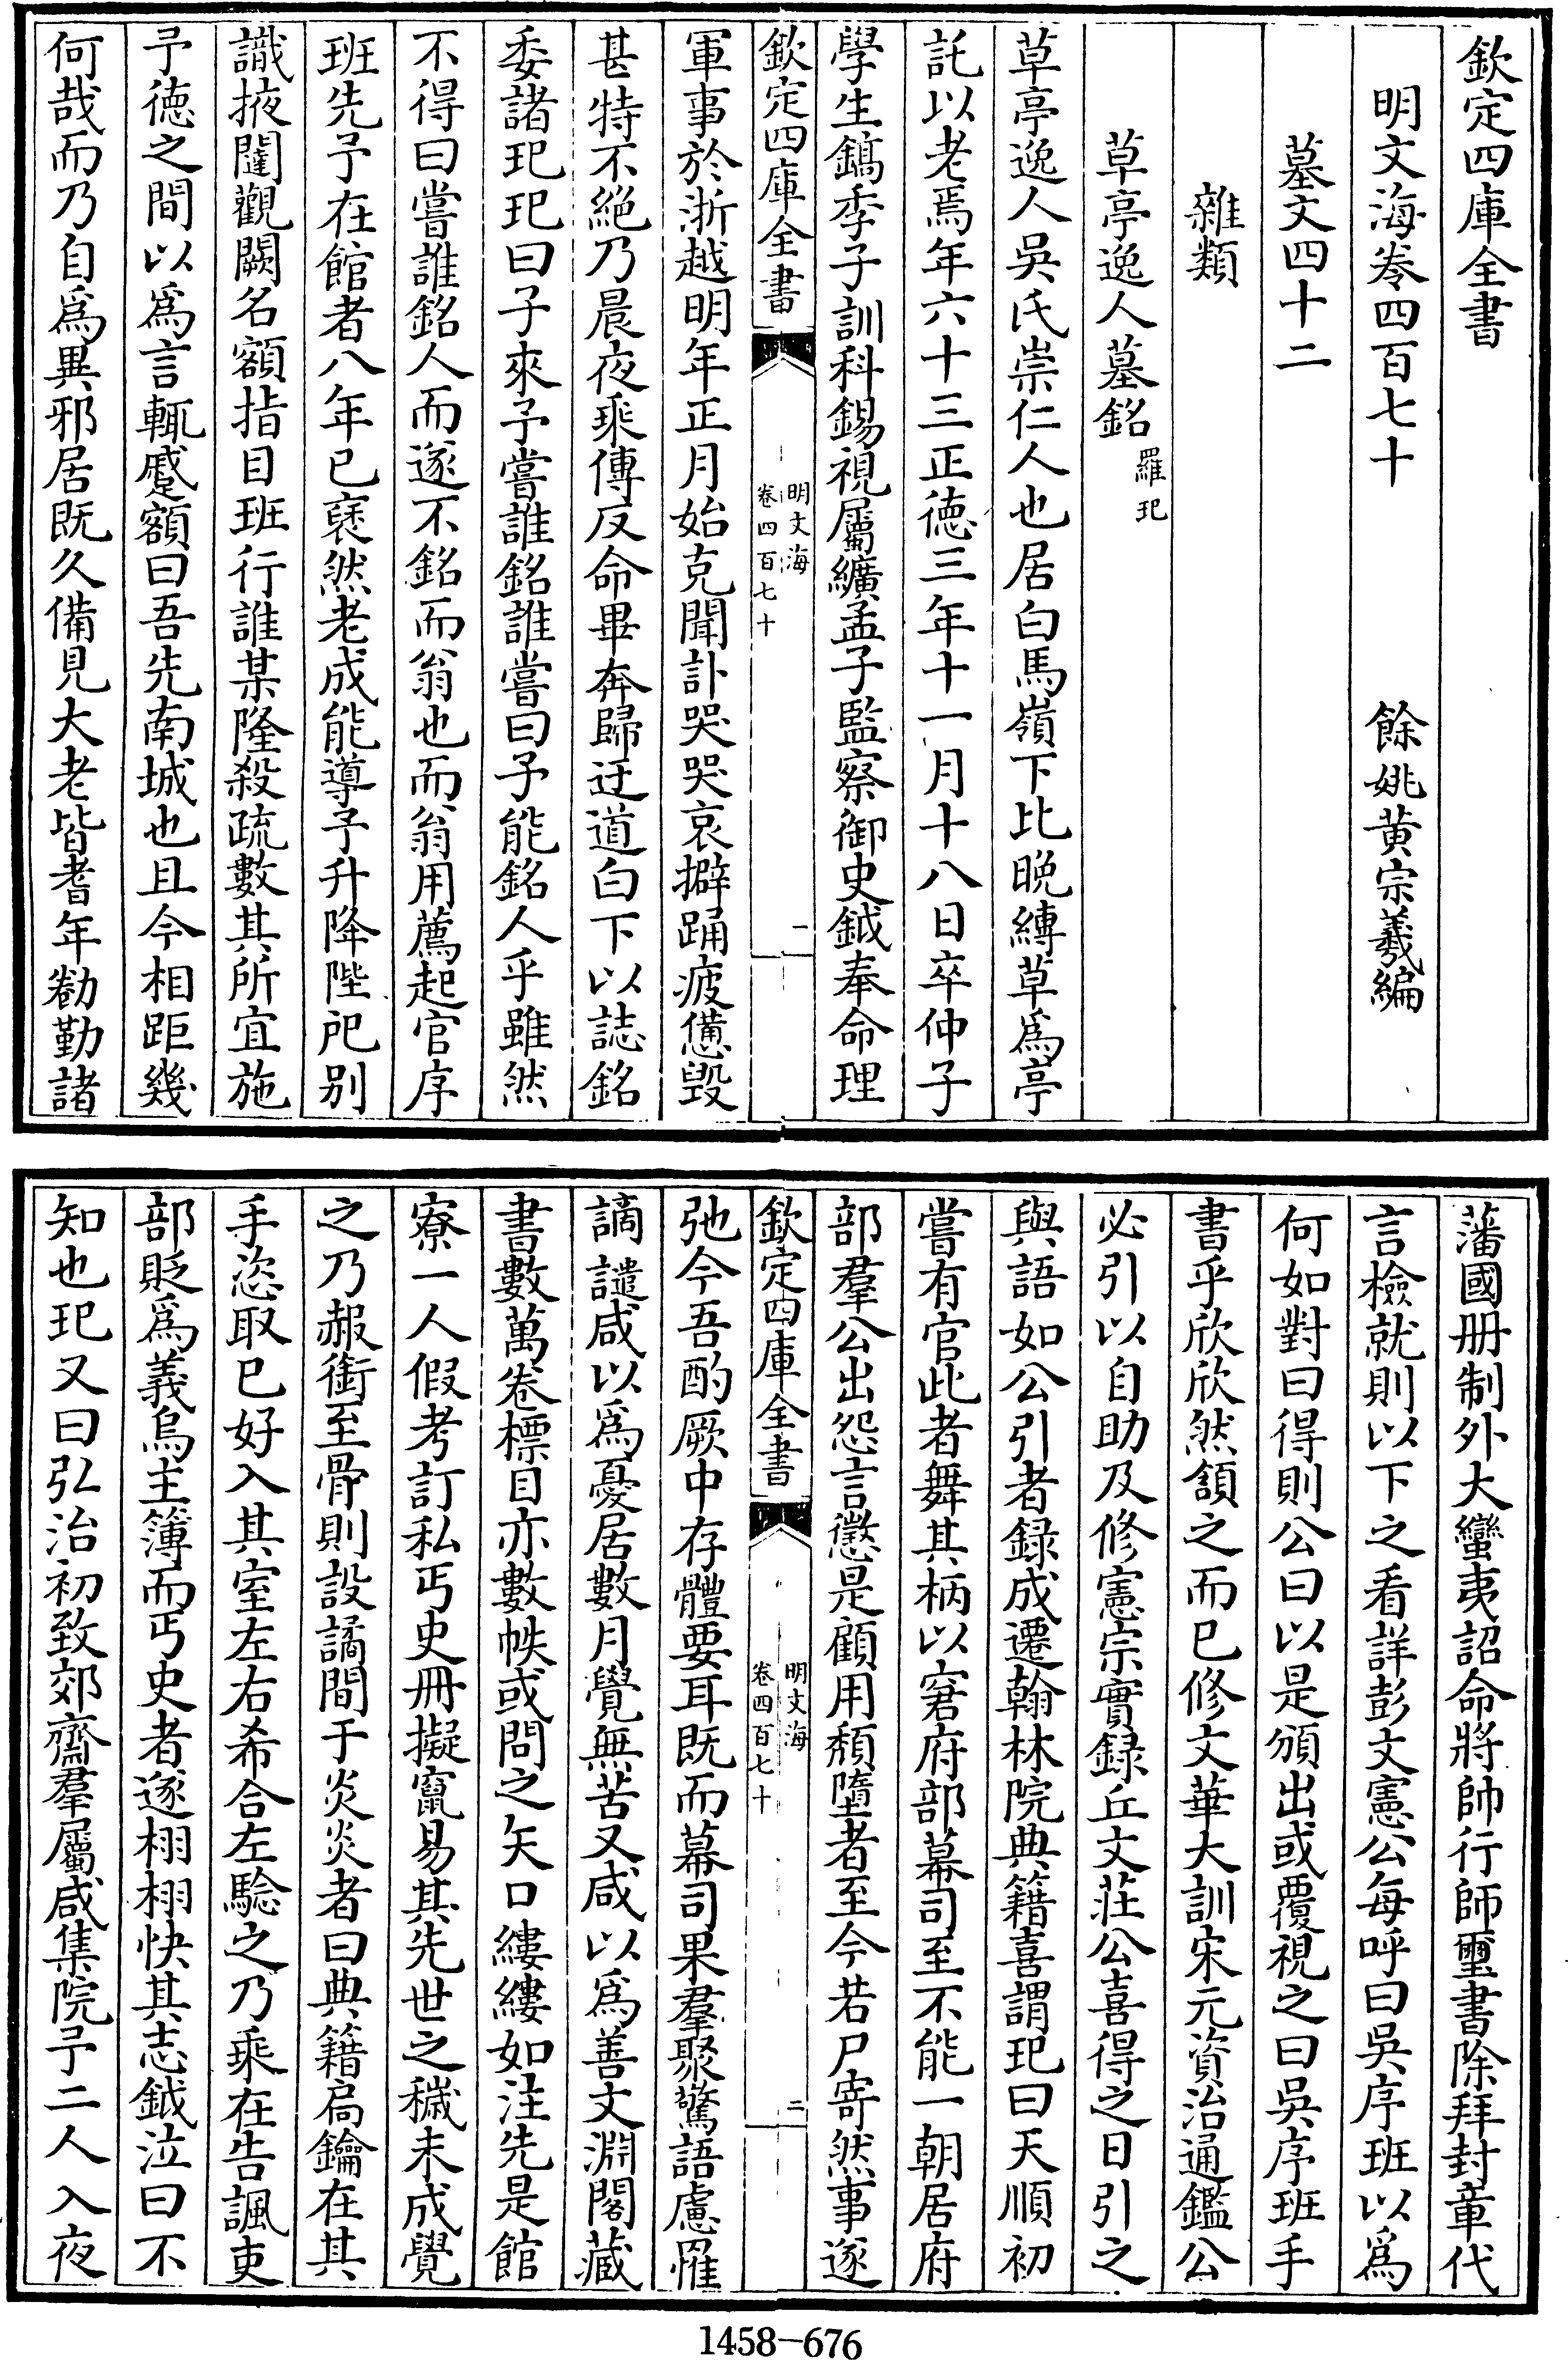 欽定四庫全書
明文海卷四百七十　餘姚黄宗羲編
墓文四十二
雜類
草亭逸人墓銘 羅玘
草亭逸人吳氏崇仁人也居白馬嶺下比晩縳草爲亭
託以老焉年六十三正德三年十一月十八日卒仲子
學生鎬季子訓科錫視屬纊孟子監察御史鉞奉命理
欽定四庫全書
明文海
卷四百七十
二
軍事於浙越明年正月始克聞訃哭哭哀擗踊疲憊毁
甚特不絶乃晨夜乘傳反命畢奔歸迂道白下以誌銘
委諸玘玘曰子來予嘗誰銘誰嘗曰予能銘人乎雖然
不得曰嘗誰銘人而遂不銘而翁也而翁用薦起官序
班先予在館者八年已裦然老成能導予升降陛戺别
識掖闥觀闕名額指目班行誰某隆殺疏數其所宜施
予德之間以爲言輒蹙額曰吾先南城也且今相距幾
何哉而乃自爲異邪居既久備見大老皆耆年勌勤諸
藩國册制外大蠻夷詔命將帥行師璽書除拜封章代
言檢就則以下之看詳彭文憲公每呼曰吳序班以爲
何如對曰得則公曰以是頒出或覆視之曰吳序班手
書乎欣欣然頷之而已修文華大訓宋元資治通鑑公
必引以自助及修憲宗實録丘文莊公喜得之日引之
與語如公引者録成遷翰林院典籍喜謂玘曰天順初
嘗有官此者舞其柄以窘府部幕司至不能一朝居府
部羣公出怨言懲是顧用頽墮者至今若尸寄然事遂
欽定四庫全書
明文海
卷四百七十
三
弛今吾酌厥中存體要耳既而幕司果羣聚驚語慮罹
謫譴咸以爲憂居數月覺無苦又咸以爲善文淵閣藏
書數萬卷標目亦數帙或問之矢口縷縷如注先是館
寮一人假考訂私丐史冊擬竄易其先世之穢未成覺
之乃赧銜至骨則設譎間于炎炎者曰典籍局鑰在其
手恣取已好入其室左右希合左驗之乃乘在告諷吏
部貶爲義烏主簿而丐史者遂栩栩快其志鉞泣曰不
知也玘又曰弘治初致郊齋羣屬咸集院予二人入夜
1458-676